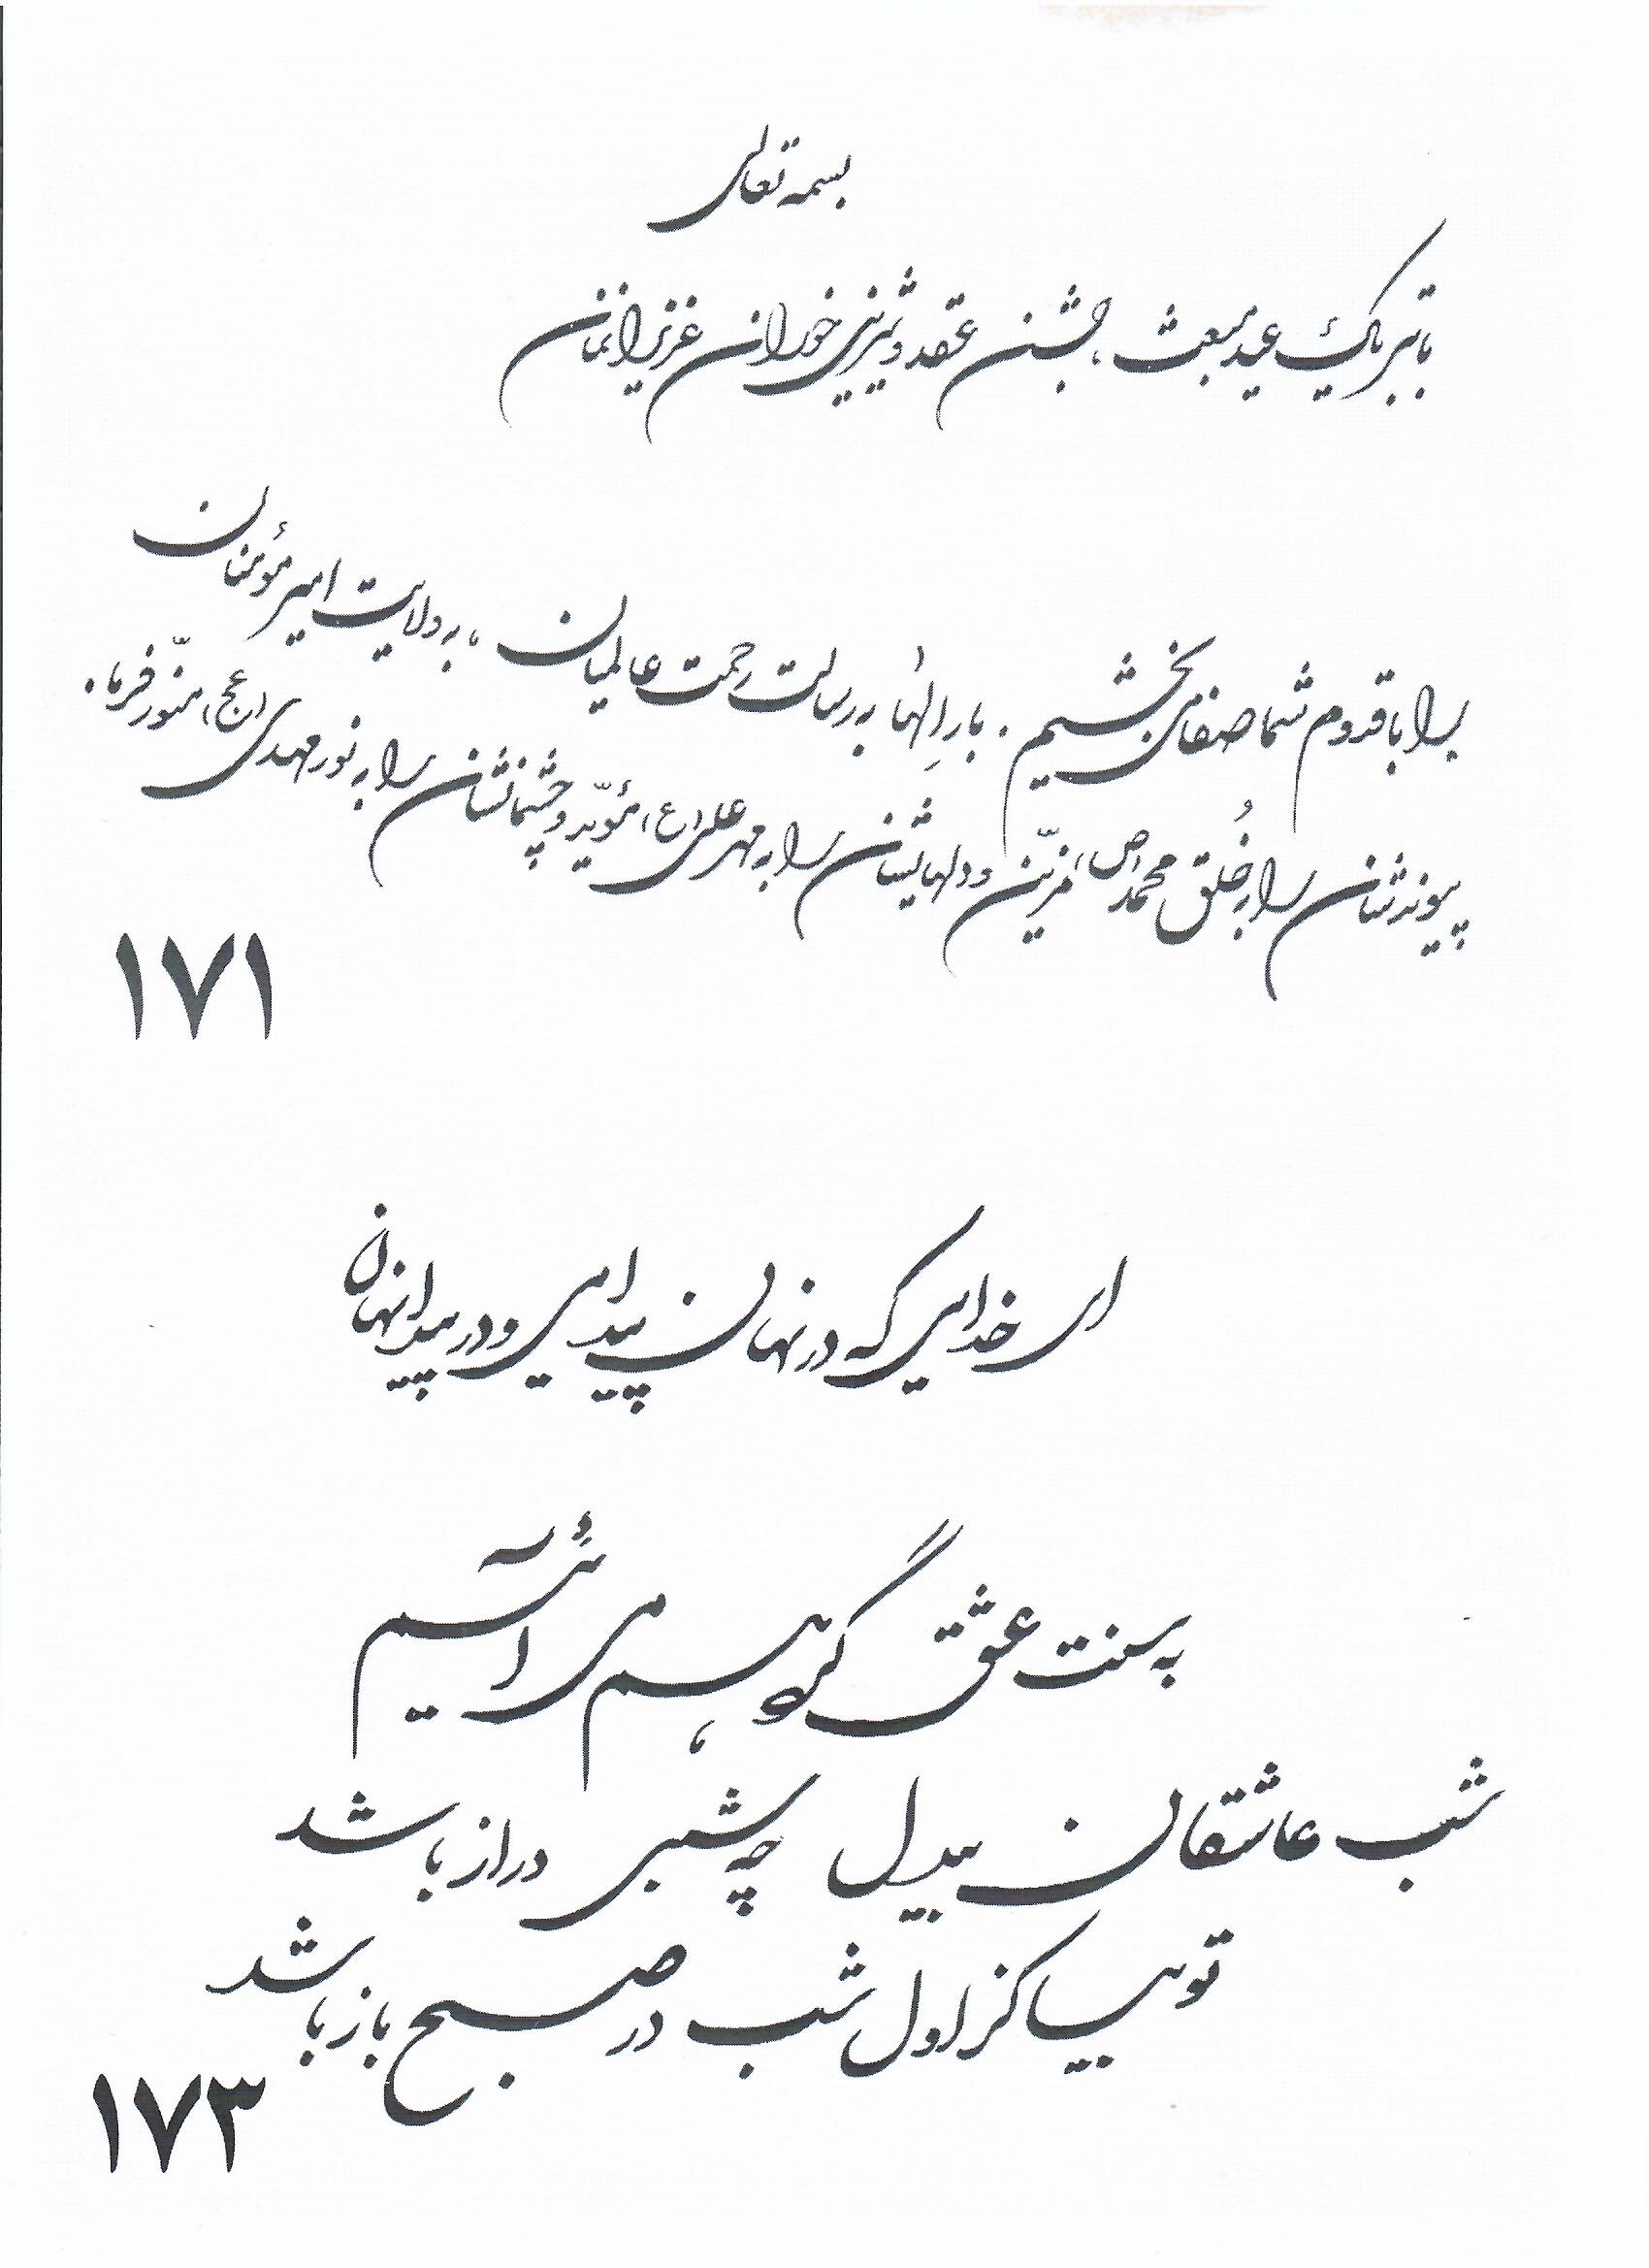 بسمه تعالی
با تبریک عید مبعث، جشن عقد و شیرینی خوران عزیزانمان
را با قدوم شما صفا می بخشیم. بارالٰها به رسالت رحمت عالمیان، به ولایت امیر مؤمنان
پیوندشان را به خُلق محمد(ص) مزیّن و دلهایشان را به مهر علی(ع) مؤیّد و چشمانشان را به نور مهدی(عج) منوّر فرما.
۱۷۱
ای خدایی که در نهان پیدایی و در پیدا نهان
به سنت عشق گرد هم می آئیم،
شب عاشقان بیدل چه شبی دراز باشد
تو بیا کز اول شب در صبح باز باشد
۱۷۳